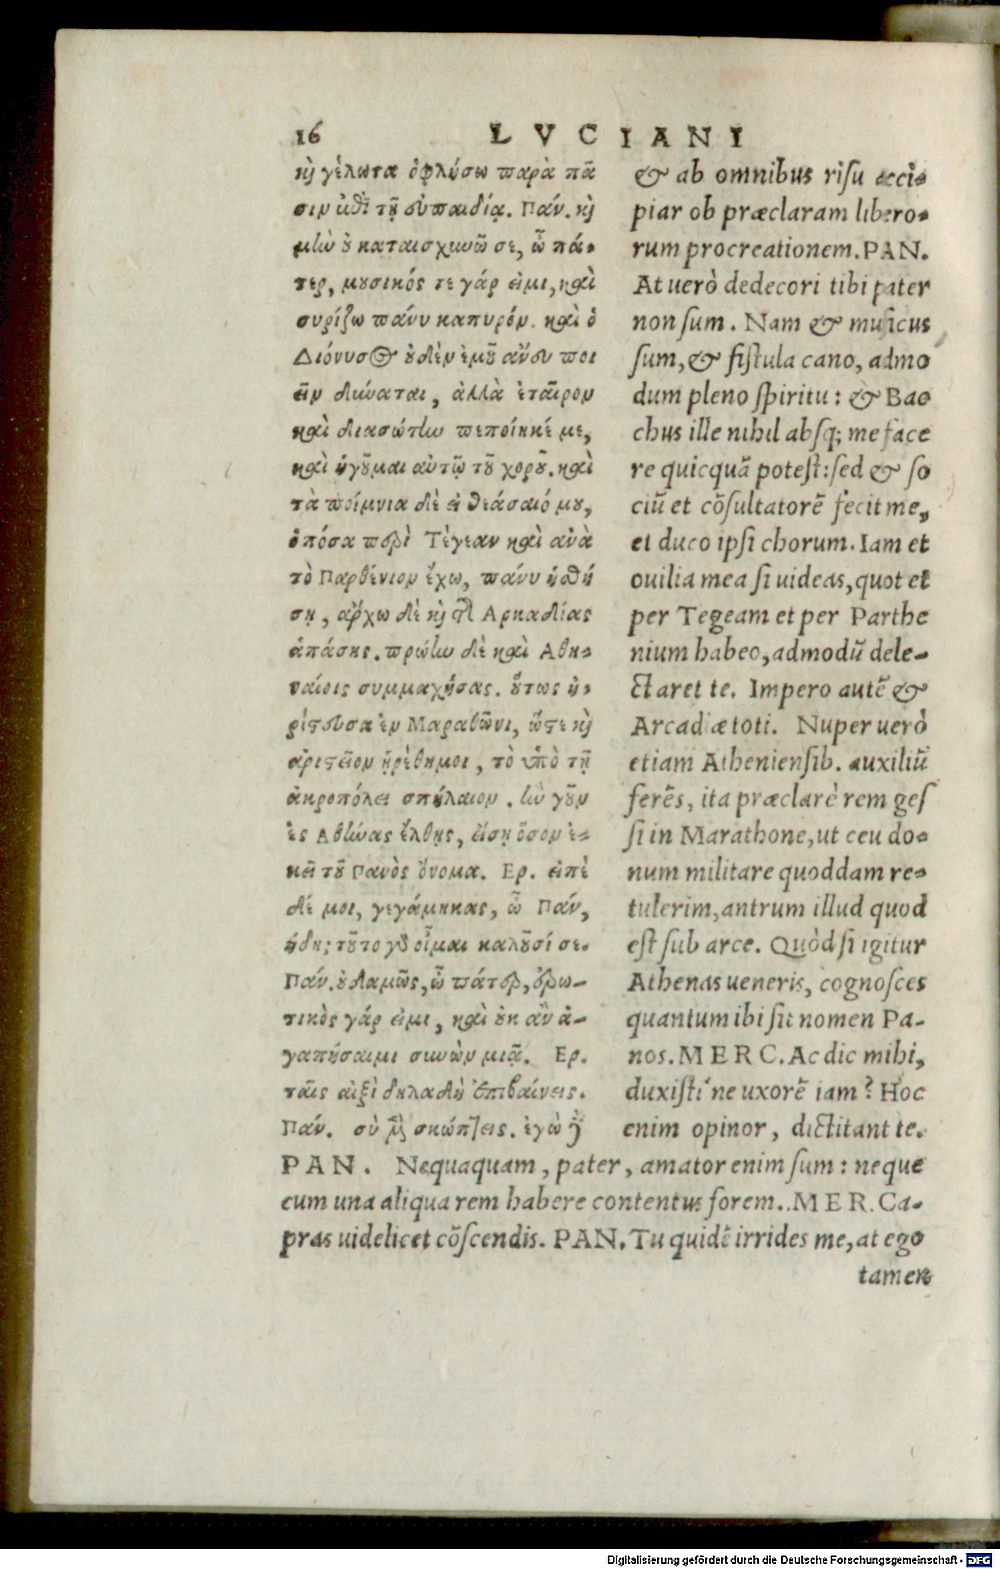 16 LVCIANI
κὴ γέλωτα ὀφλήσω παρὰ πᾶ
σιν ἐπὶ τῇ εὐπαιδίᾳ. Πάν. κὴ
μὴν ȣ̓ καταισχυνῶ σε, ὦ πά-
τερ, μȣσικός τε γάρ εἰμι, καὶ
συρίζω πάνυ καπυρόν. καὶ ὁ
Διόνυσος ȣ̓δὲν ἐμȣ͂ ἄνευ ποι
εῖν δύναται, ἀλλὰ ἑταῖρον
καὶ διασώτην πεποίηκέ με,
καὶ ἡγȣ͂μαι αὐτῷ τȣ͂ χορȣ͂. καὶ
τὰ ποίμνια δὲ εἰ θεάσαιό μȣ,
ὁπόσα περὶ Τέγεαν καὶ ἀνὰ
τὸ Παρθένιον ἔχω, πάνυ ἡσθή
σῃ, ἄρχω δὲ κὴ τῆς Αρκαδίας
ἁπάσης. πρώην δὲ καὶ Αθη-
ναίοις συμμαχήσας. ȣ̔́τως ἠ-
ρίστευσα ἐν Μαραθῶνι, ὥστε κὴ
ἀριστεῖον ᾑρέθημοι, τὸ ὑπὸ τῇ
ἀκροπόλει σπήλαιον. ἢν γȣ͂ν
ἐς Αθήνας ἔλθῃς, εἴσῃ ὅσον ἐ-
κεῖ τȣ͂ Πανὸς ὄνομα. Ερ. εἰπὲ
δέ μοι, γεγάμηκας, ὦ Πάν,
ἤδη; τȣ͂το γὰρ οἶμαι καλȣ͂σί σε.
Πάν. ȣ̓δαμῶς, ὦ πάτερ, ἐρω-
τικὸς γάρ εἰμι, καὶ ȣ̓κ ἂν ἀ-
γαπήσαιμι συνὼν μιᾷ. Ερ.
ταῖς αἰξὶ δηλαδὴ ἐπιβαίνεις.
Πάν. σὺ μὲν σκώπτεις. ἐγὼ δὲ
& ab omnibus risu acci-
piar ob præclaram libero-
rum procreationem. PAN.
At uerò dedecori tibi pater
non sum. Nam & musicus
sum, & fistula cano, admo
dum pleno spiritu: & Bac
chus ille nihil absq; me face
re quicquã potest: sed & so
ciũ et cõsultatorẽ fecit me,
et duco ipsi chorum. Iam et
ouilia mea si uideas, quot et
per Tegeam et per Parthe
nium habeo, admodũ dele-
ctaret te. Impero autẽ &
Arcadiæ toti. Nuper uerò
etiam Atheniensib. auxiliũ
ferẽs, ita præclarè rem ges
si in Marathone, ut ceu do-
num militare quoddam re-
tulerim, antrum illud quod
est sub arce. Quòd si igitur
Athenas ueneris, cognosces
quantum ibi sit nomen Pa-
nos. MERC. Ac dic mihi,
duxisti'ne uxorẽ iam? Hoc
enim opinor, dictitant te.
PAN. Nequaquam, pater, amator enim sum: neque
cum una aliqua rem habere contentus forem.. MER. Ca-
pras uidelicet cõscendis. PAN. Tu quidẽ irrides me, at ego
tamen
Digitalisierung gefördert durch die Deutsche Forschungsgemeinschaft - DFG